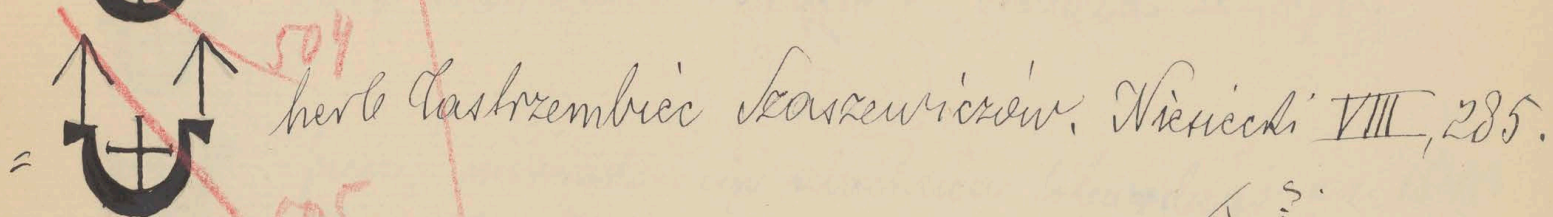 504
= herb Jastrzembiec Szaszewiczów. Niesiecki VIII, 285.
505